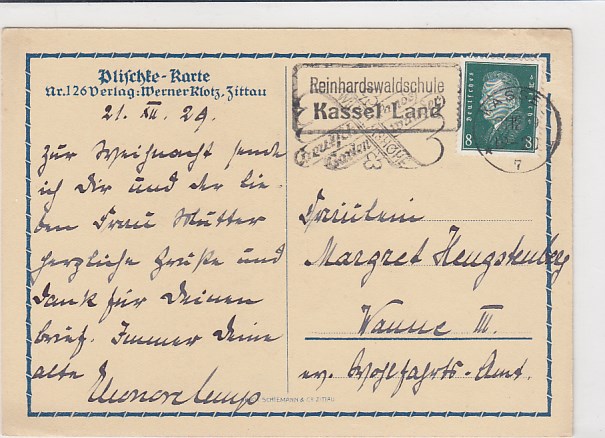 Plischke-Karte
Nr. 126 Verlag: Werner Klotz, Zittau
21. XII. 29.
Zur Weihnacht sende
ich Dir und der lie-
ben Frau Mutter
herzliche Grüße und
Dank für Deinen
Brief. Immer Deine
alte
Reinhardswaldschule
Kassel Land
Deutsches Reich
8 8
7
Fräulein
Margret Hengstenberg
Wanne III.
ev. Wohlfahrts-Amt.
ZITTAU